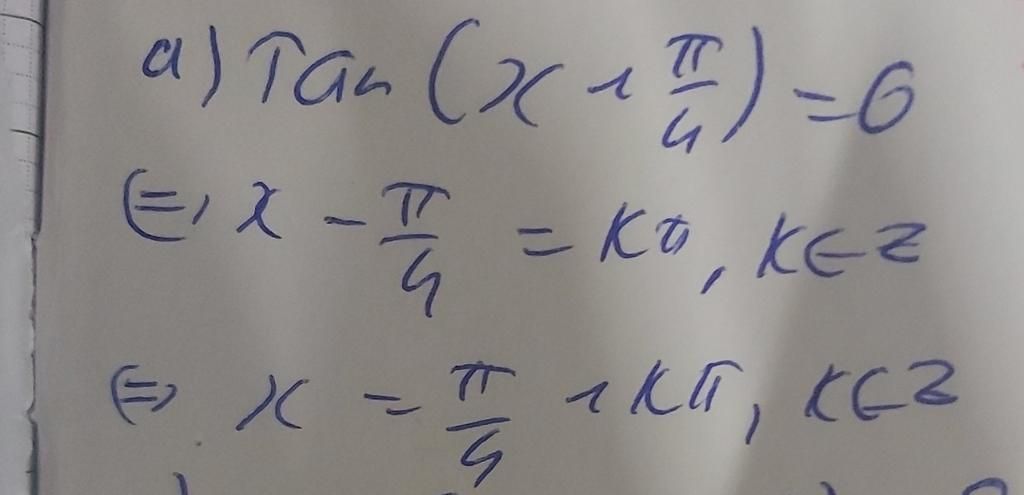 a) Tan (x + π/4) = 0
⇔ x - π/4 = kπ, k ∈ Z
⇔ x = π/4 + kπ, k ∈ Z